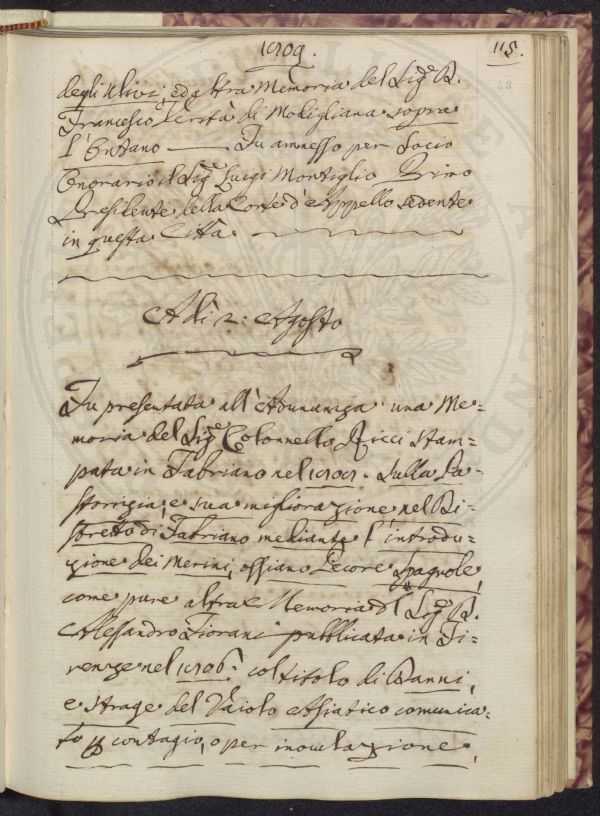 1809.
115.
58
degli Ulivi, ed altra Memoria del Sig.e D.
Francesco Verità di Modigliana sopra
l'Ontano —— Fu ammesso per Socio
Onorario il Sig.e Luigi Montiglio Primo
Presidente della Corte d'Appello sedente
in questa Città.
Adi 2: Agosto
Fu presentata all'Adunanza una Me=
moria del Sig.e Colonnello Ricci stam=
pata in Fabriano nel 1807. sulla Pa-
storizia, e sua migliorazione nel Di=
stretto di Fabriano mediante l'introdu=
zione dei Merini, ossiano Pecore Spagnole,
come pure altra Memoria del Sig.e D.
Alessandro Fiorani pubblicata in Fi=
renze nel 1806. col titolo di Danni,
e strage del Vaiolo Asiatico comunica=
to p contagio, o per inoculazione,